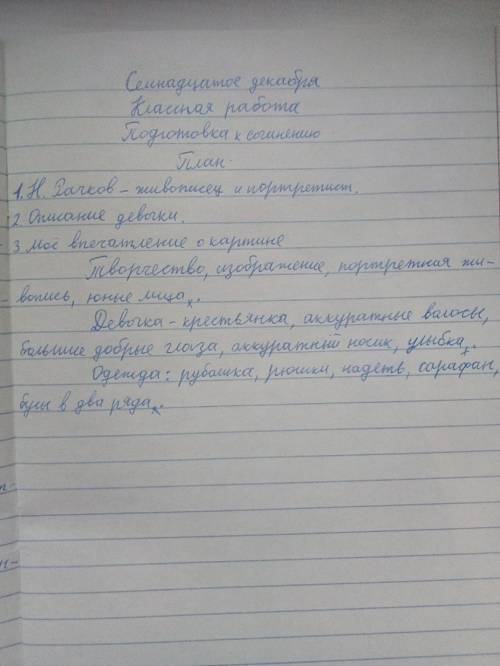 Семнадцатое декабря
Классная работа
Подготовка к сочинению
План.
1. Н. Рачков – живописец и портретист.
2. Описание девочки.
3 Моё впечатление о картине
Творчество, изображение, портретная жи-
вопись, юные лица.
Девочка – крестьянка, аккуратные волосы,
большие добрые глаза, аккуратный носик, улыбка.
Одежда: рубашка, рюшки, надеть, сарафан,
бусы в два ряда.